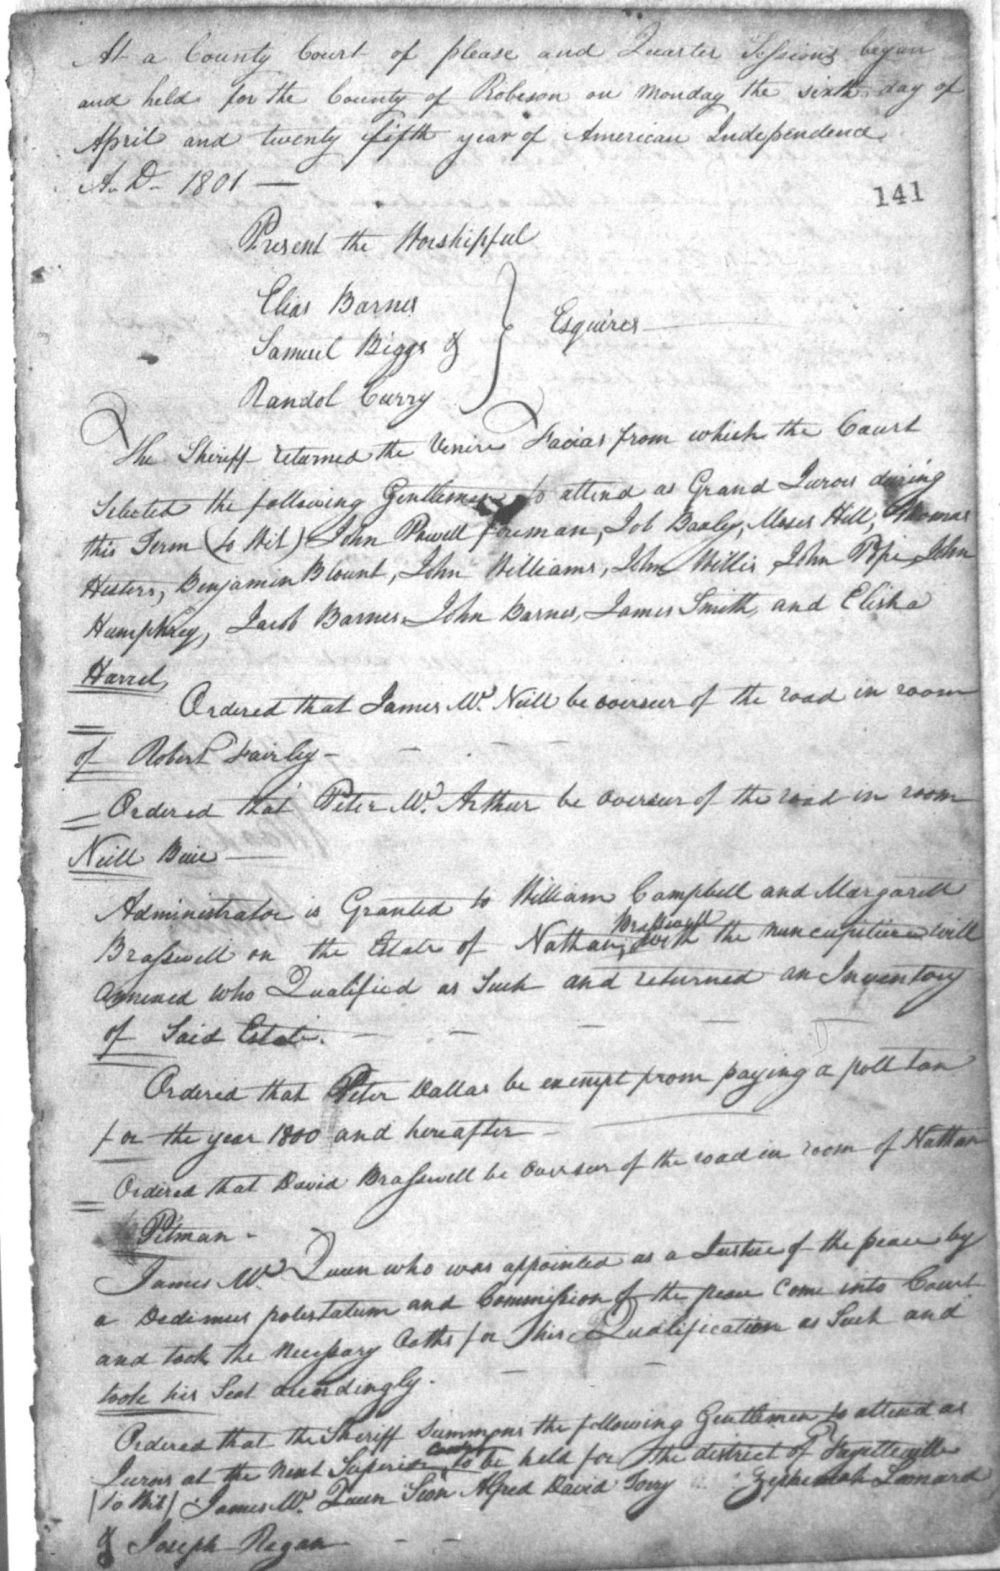 At a County Court of please and Quarter Sessions began
and held for the County of Robeson on Monday the sixth day of
April and twenty fifth year of American Independence
A. D. 1801 —
141
Present the Worshipful
Elias Barnes
Samuel Biggs &
Randol Curry
Esquires
The Sheriff returned the Venire Facias from which the Court
Selected the following Gentlemen to attend as Grand Jurors during
this Term (to Wit) John Powell foreman, Job Baxley, Moses Hill, Thomas
Hesters, Benjamin Blount, John Williams, John Willis, John Pope, John
Humphrey, Jacob Barnes, John Barnes, James Smith, and Elisha
Harrel,
Ordered that James Mc. Neill be overseer of the road in room
of Robert Fairley -
Ordered that Peter Mc. Arthur be overseer of the road in room
Neill Buie
Administrator is Granted to William Campbell and Margarett
Braswell on the Estate of Nathan Braswell with the nuncupitive will
annexed who Qualified as Such and returned an Inventory
of Said Estate.
Ordered that Peter Dallas be exempt from paying a poll tax
for the year 1800 and hereafter
Ordered that David Brasswell be overseer of the road in room of Nathan
Pitman -
James Mc. Queen who was appointed as a Justice of the peace by
a Dedimus potestatum and Commission of the peace Come into Court
and took the Necessary Oaths for his Qualification as Such and
took his Seat accordingly.
Ordered that the Sheriff Summons the following Gentlemen to attend as
Jurors at the next Superior Court to be held for the district of Fayetteville
(to Wit) James Mc. Queen Sion Alfred David Torry Lennard
& Joseph Regan